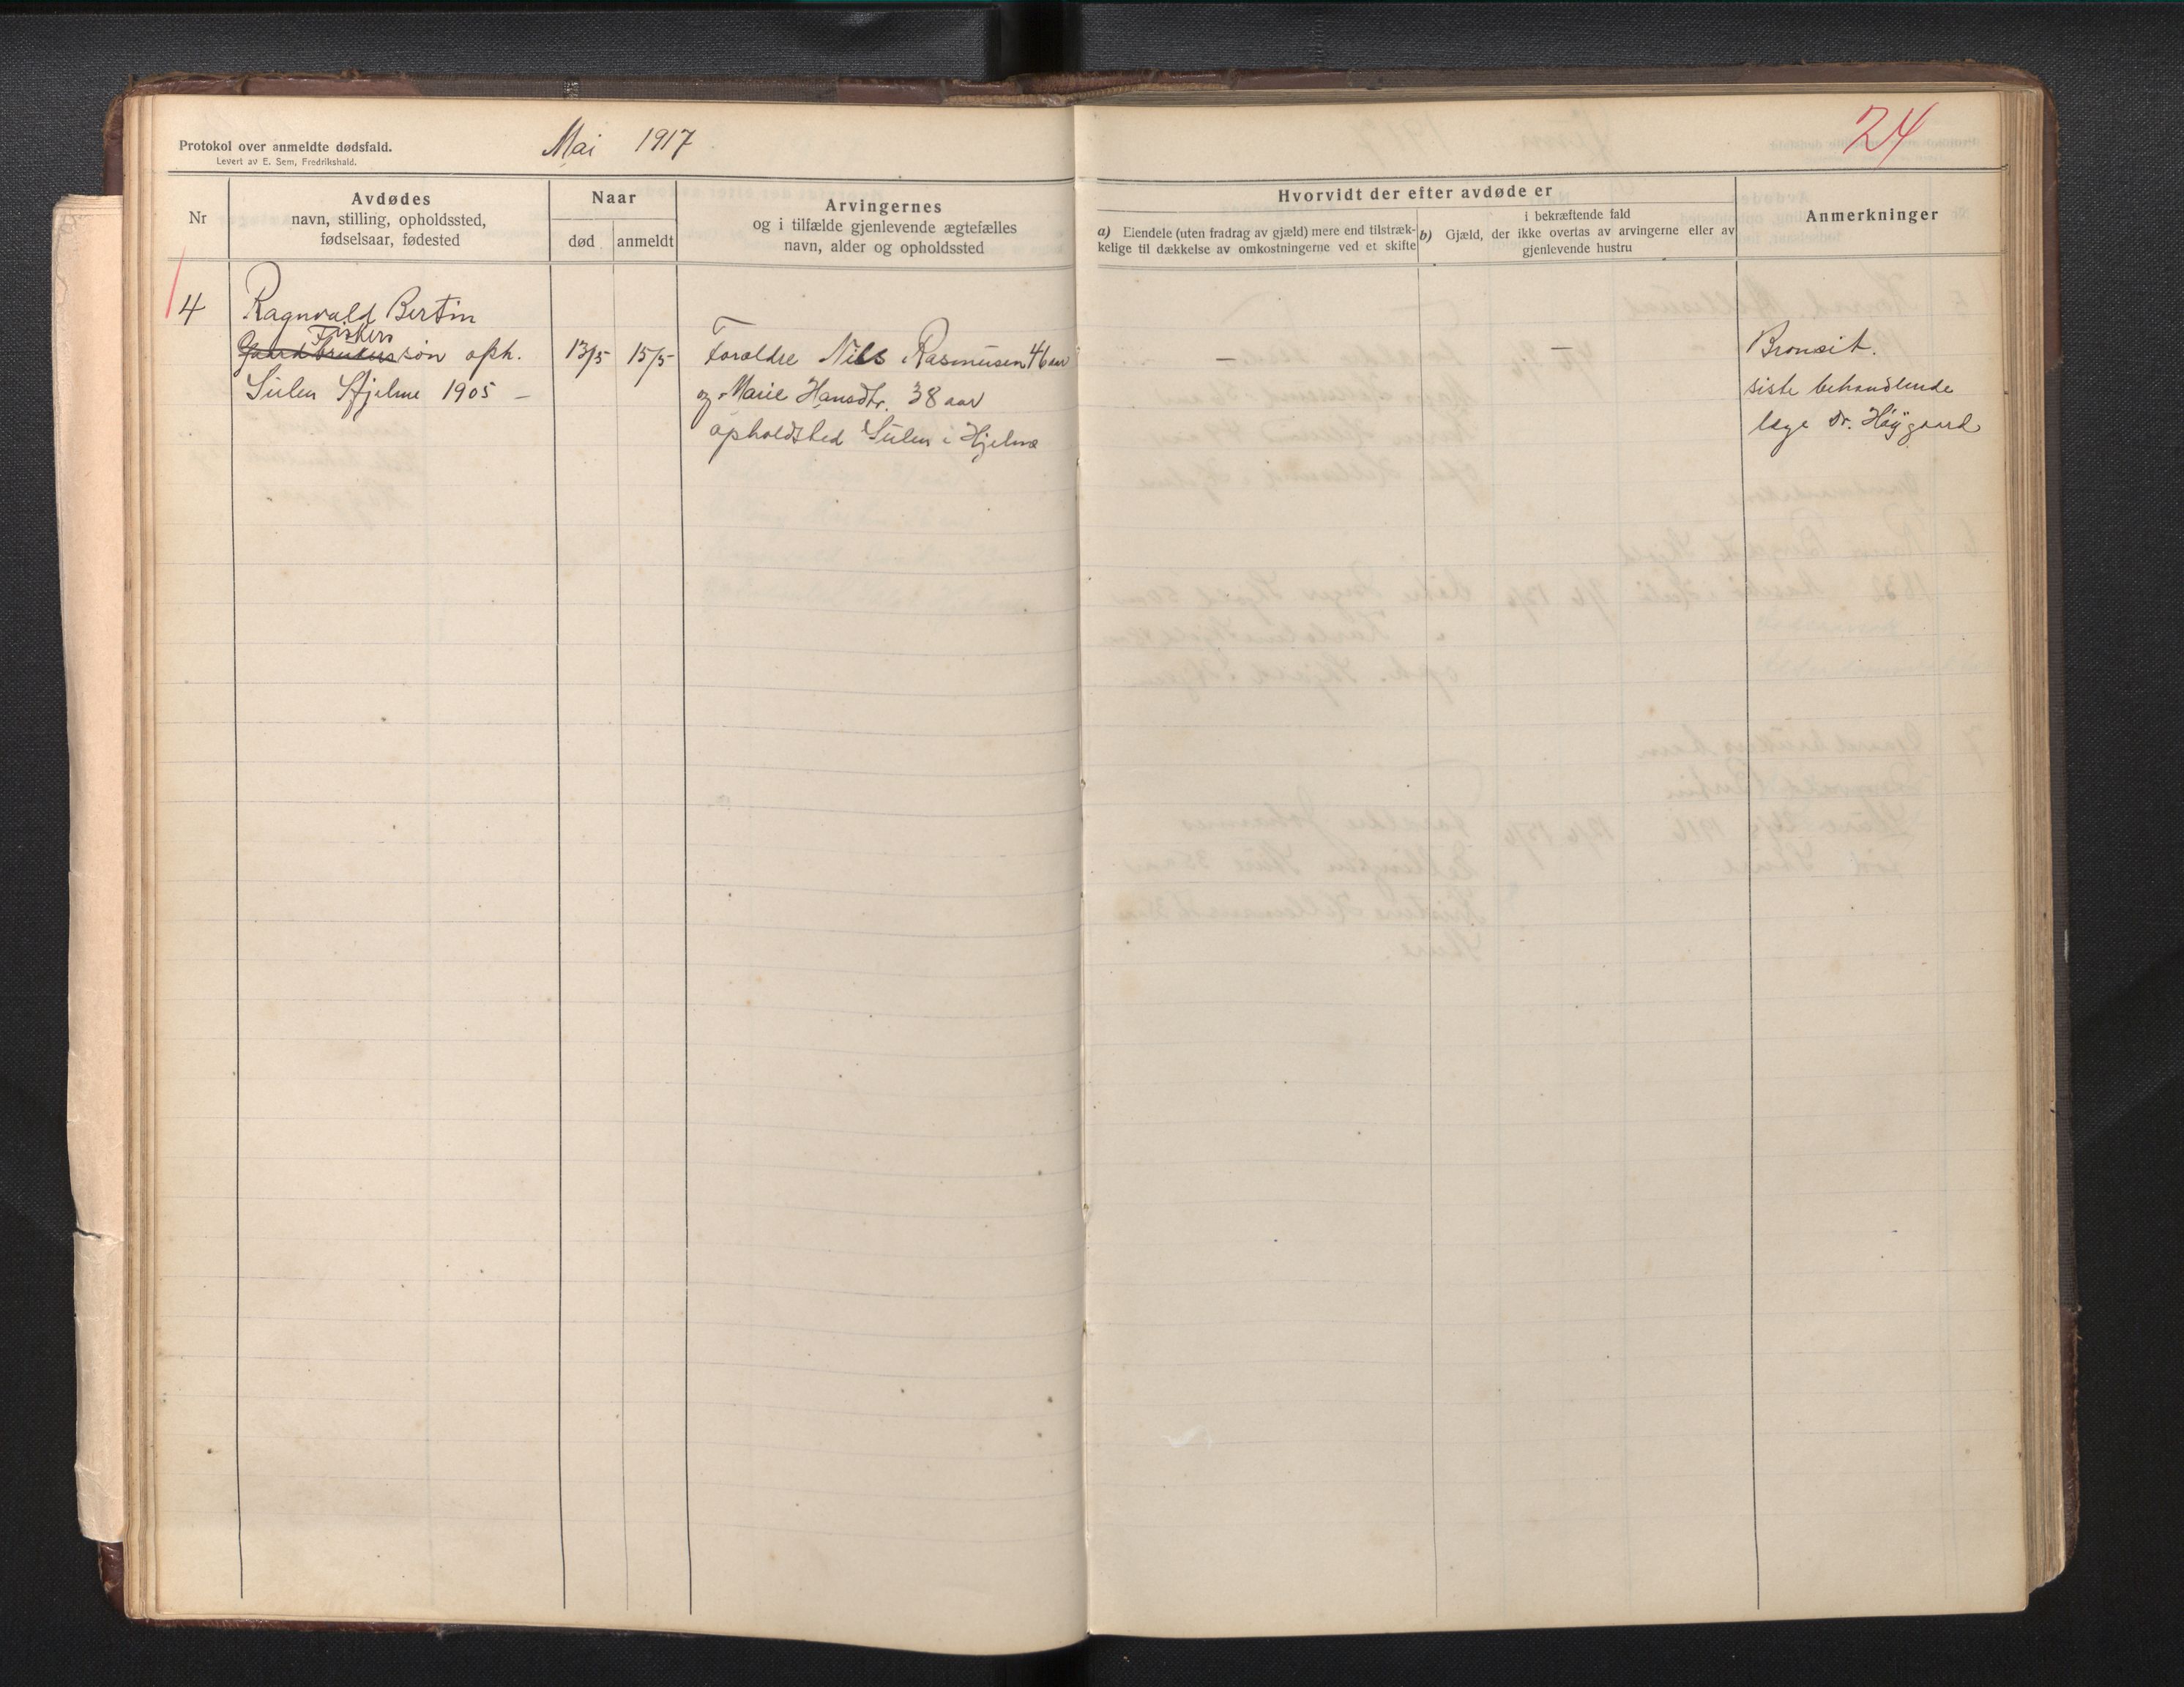 Protokol over anmeldte dødsfald.
Levert av E. Sem, Fredrikshald.
Mai 1917
24
Nr
Avdødes
navn, stilling, opholdssted,
fødselsaar, fødested
Naar
død
anmeldt
Arvingernes
og i tilfælde gjenlevende ægtefælles
navn, alder og opholdssted
Hvorvidt der efter avdøde er
a) Eiendele (uten fradrag av gjæld) mere end tilstræk-
kelige til dækkelse av omkostningerne ved et skifte
i bekræftende fald
b) Gjæld, der ikke overtas av arvingerne eller av
gjenlevende hustru
Anmerkninger
4
Ragnvald Bertin
Fiskers
Gaardbrukersøn oph.
Sulen Hjelme 1905 –
13/5
15/5
Foroldre Nils Rasmusen 46 aar
og Marie Hansdtr. 38 aar
opholdsted Sulen i Hjelme
–
–
Bronsit.
siste behandlende
læge Dr. Høygaard